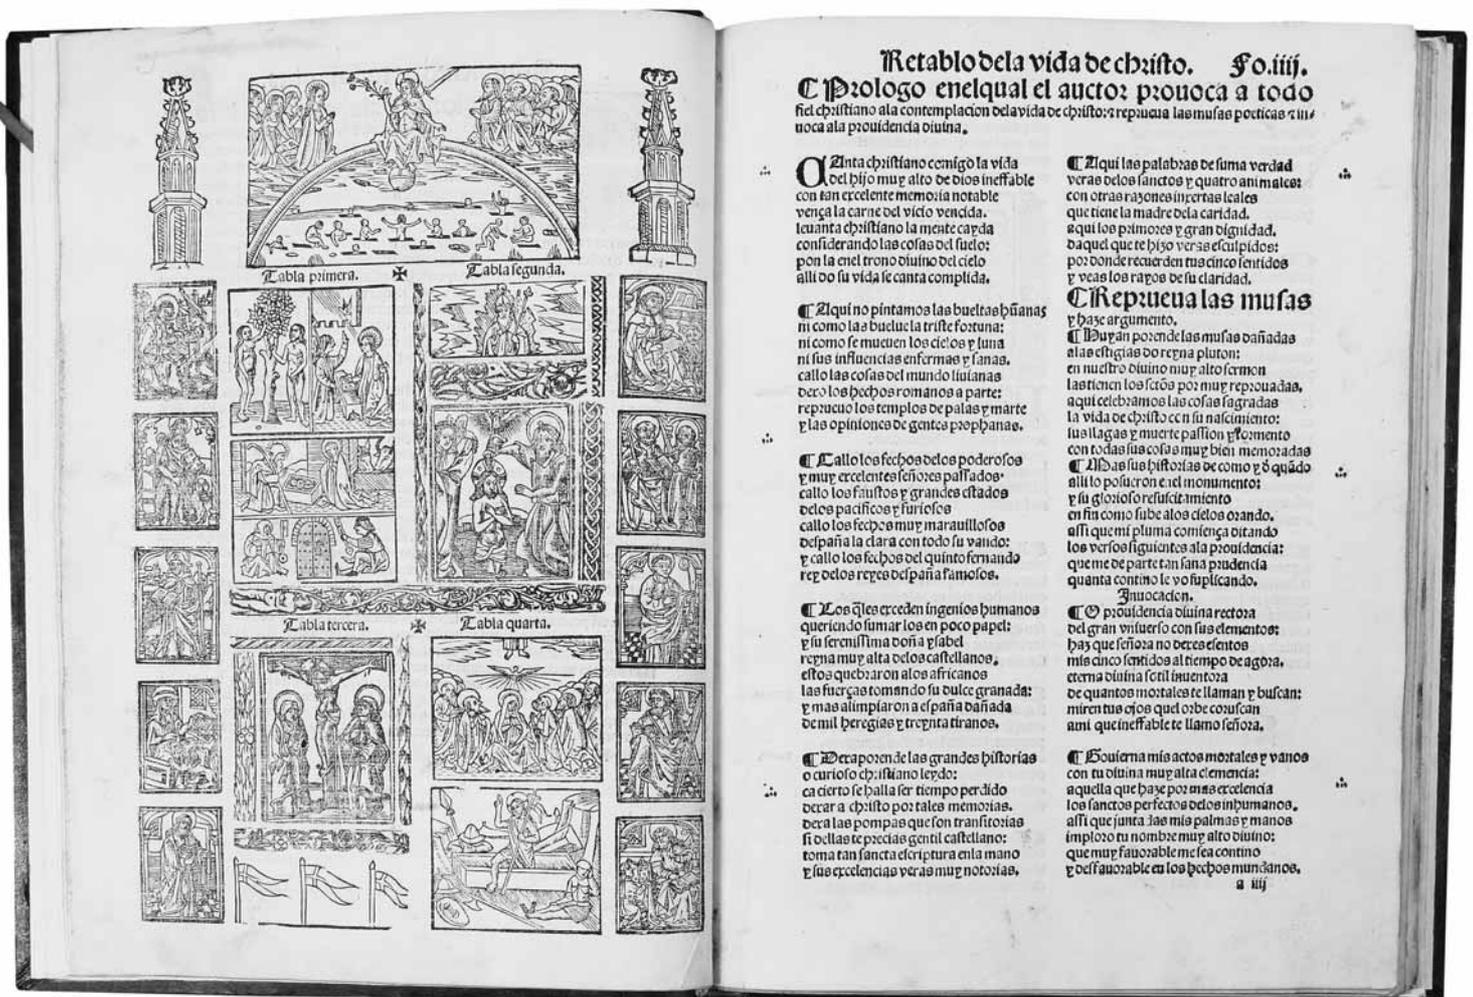 Tabla primera. ✠ Tabla segunda.
Tabla tercera. ✠ Tabla quarta.
Retablo dela vida de christo. Fo.iiij.
¶ Prologo enelqual el auctor prouoca a todo
fiel christiano ala contemplacion dela vida de christo: ⁊ reprueua las musas poeticas ⁊ in-
uoca ala prouidencia diuina.
CAnta christiano comigo la vida
del hijo muy alto de dios ineffable
con tan excelente memoria notable
vença la carne del vicio vencida.
leuanta christiano la mente cayda
considerando las cosas del suelo:
pon la enel trono diuino del cielo
alli do su vida se canta complida.
¶ Aqui no pintamos las bueltas hũanas
ni como las buelue la triste fortuna:
ni como se mueuen los cielos y luna
ni sus influencias enfermas y sanas.
callo las cosas del mundo liuianas
dexo los hechos romanos a parte:
reprueuo los templos de palas y marte
y las opiniones de gentes prophanas.
¶ Callo los fechos delos poderosos
y muy excelentes señores passados.
callo los faustos y grandes estados
delos pacificos y furiosos
callo los fechos muy marauillosos
despaña la clara con todo su vando:
y callo los fechos del quinto fernando
rey delos reyes despaña famosos.
¶ Los q̃les exceden ingenios humanos
queriendo sumar los en poco papel:
y su serenissima doña ysabel
reyna muy alta delos castellanos.
estos quebraron alos africanos
las fuerças tomando su dulce granada:
y mas alimpiaron a españa dañada
de mil heregias y treynta tiranos.
¶ Dexa porende las grandes historias
o curioso christiano leydo:
ca cierto se halla ser tiempo perdido
dexar a christo por tales memorias.
dexa las pompas que son transitorias
si dellas te precias gentil castellano:
toma tan sancta escriptura enla mano
y sus excelencias veras muy notorias.
¶ Aqui las palabras de suma verdad
veras delos sanctos y quatro animales:
con otras razones inxertas leales
que tiene la madre dela caridad.
aqui los primores y gran dignidad.
daquel que te hizo veras esculpidos:
por donde recuerden tus cinco sentidos
y veas los rayos de su claridad.
¶ Reprueua las musas
y haze argumento.
¶ Huyan porende las musas dañadas
alas estigias do reyna pluton:
en nuestro diuino muy alto sermon
las tienen los sctõs por muy reprouadas.
aqui celebramos las cosas sagradas
la vida de christo con su nascimiento:
sus llagas y muerte passion y tormento
con todas sus cosas muy bien memoradas
¶ Mas sus historias de como y q̃ quãdo
alli lo pusieron enel monumento:
y su glorioso resuscitamiento
en fin como sube alos cielos orando.
assi que mi pluma comiença ditando
los versos siguientes ala prouidencia:
que me de parte tan sana prudencia
quanta contino le vo suplicando.
Inuocacion.
¶ O prouidencia diuina rectora
del gran vniuerso con sus elementos:
haz que señora no dexes esentos
mis cinco sentidos al tiempo de agora.
eterna diuina sotil inuentora
de quantos mortales te llaman y buscan:
miren tus ojos quel orbe coruscan
ami que ineffable te llamo señora.
¶ Gouierna mis actos mortales y vanos
con tu diuina muy alta clemencia:
aquella que haze por mas excelencia
los sanctos perfectos delos inhumanos.
assi que junta das mis palmas y manos
imploro tu nombre muy alto diuino:
que muy fauorable me sea contino
y desfauorable en los hechos mundanos.
a iiij